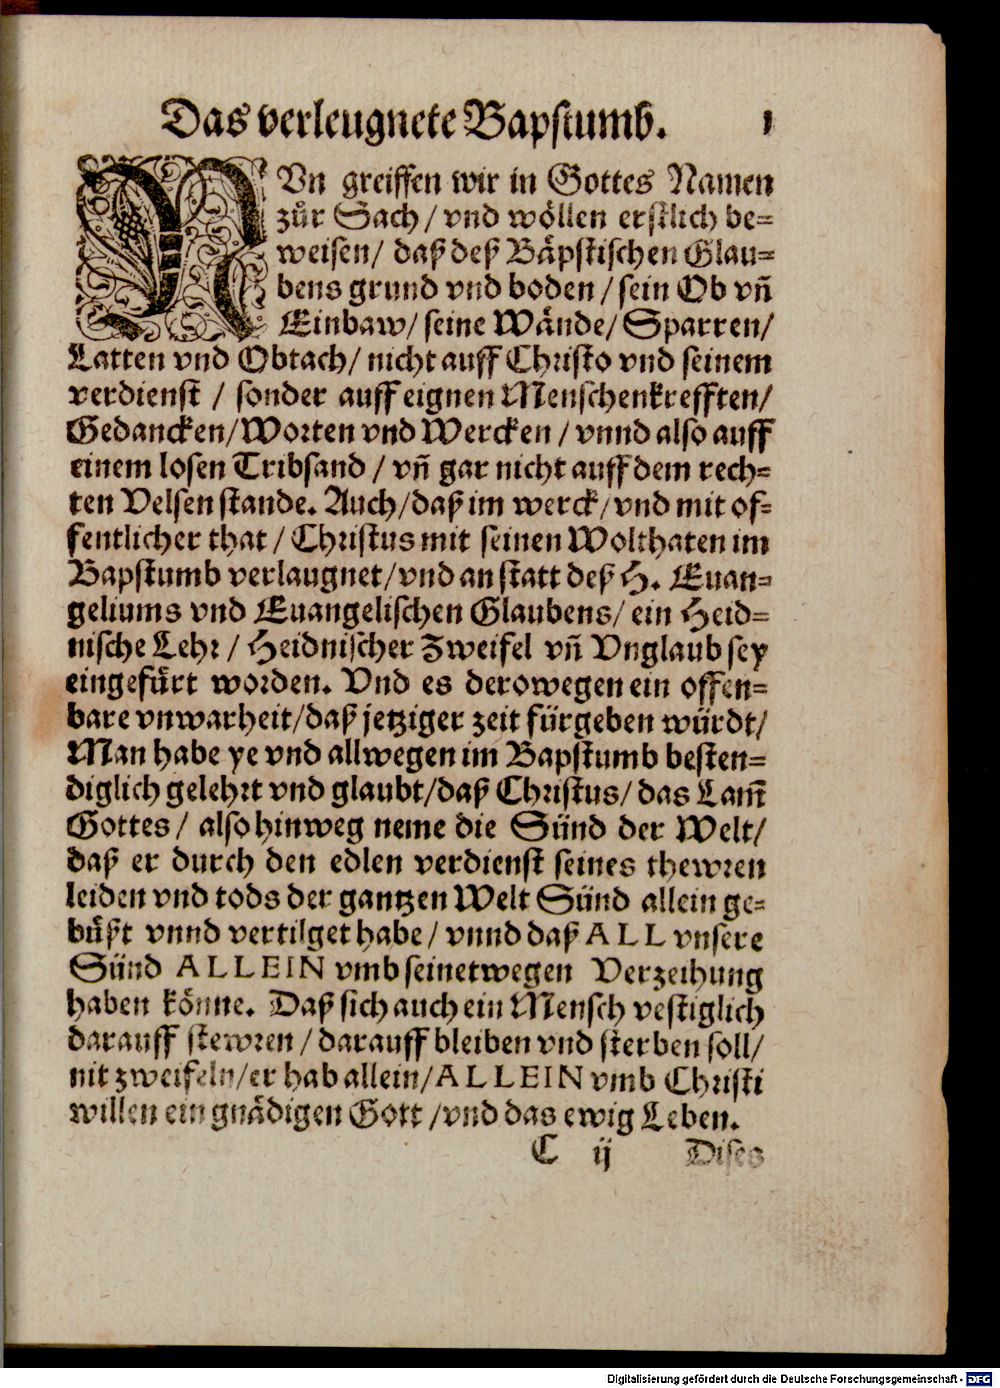 Das verleugnete Bapstumb. 1
NVn greiffen wir in Gottes Namen
zůr Sach / vnd wöllen erstlich be=
weisen / daß deß Bäpstischen Glau=
bens grund vnd boden / sein Ob vñ
Einbaw / seine Wände / Sparren /
Latten vnd Obtach / nicht auff Christo vnd seinem
verdienst / sonder auff eignen Menschenkrefften /
Gedancken / Worten vnd Wercken / vnnd also auff
einem losen Tribsand / vñ gar nicht auff dem rech=
ten Velsen stande. Auch / daß im werck / vnd mit of=
fentlicher that / Christus mit seinen Wolthaten im
Bapstumb verlaugnet / vnd an statt deß H. Euan=
geliums vnd Euangelischen Glaubens / ein Heid=
nische Lehr / Heidnischer Zweifel vñ Vnglaub sey
eingefürt worden. Vnd es derowegen ein offen=
bare vnwarheit / daß jetziger zeit fürgeben würdt /
Man habe ye vnd allwegen im Bapstumb besten=
diglich gelehrt vnd glaubt / daß Christus / das Lam̃
Gottes / also hinweg neme die Sünd der Welt /
daß er durch den edlen verdienst seines thewren
leiden vnd tods der gantzen Welt Sünd allein ge=
büßt vnnd vertilget habe / vnnd daß ALL vnsere
Sünd ALLEIN vmb seinetwegen Verzeihung
haben könne. Daß sich auch ein Mensch vestiglich
darauff stewren / darauff bleiben vnd sterben soll /
nit zweifeln / er hab allein / ALLEIN vmb Christi
willen ein gnädigen Gott / vnd das ewig Leben.
C ij Dises
Digitalisierung gefördert durch die Deutsche Forschungsgemeinschaft - DFG